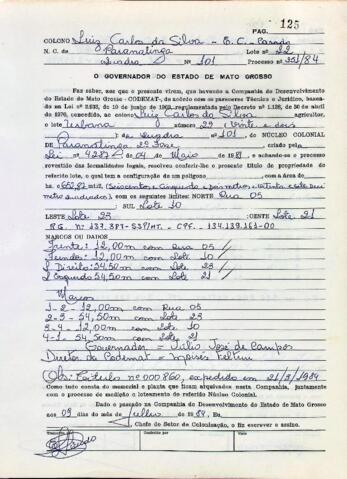 PAG. 125
COLONO Luiz Carlos da Silva - E. C. Casado
N. C. de Paranatinga Lote nº 22
Quadra Nº 101 Processo nº 351/84
O GOVERNADOR DO ESTADO DE MATO GROSSO
Faz saber, aos que o presente virem, que havendo a Companhia de Desenvolvimento
do Estado de Mato Grosso - CODEMAT, de acôrdo com os pareceres Técnico e Jurídico, basea-
da na Lei nº 2.538, de 10 de junho de 1965, regulamentada pelo Decreto nº 1.138, de 30 de abril
de 1970, concedido, ao colono Luiz Carlos da Silva, agricultor,
o lote Urbano número 22 - vinte e dois
da Quadra nº 101, do NÚCLEO COLONIAL
de Paranatinga 2ª Fase, criado pela
Lei nº 4287 de 04 de Maio de 1981, e achando-se o processo
revestido das formalidades legais, resolveu conferir-lhe o presente título de propriedade do
referido lote, o qual tem a configuração de um polígono com a Área de
652,87 mts2 (Seiscentos e Cinquenta e dois metros e oitenta e sete deci
metros quadrados) com os seguintes limites: NORTE Rua 05
SUL Lote 10
LESTE Lote 23 OESTE Lote 21
RG. Nº 137.387-SSP/MT. - CPF. - 134.139.161-00
MARCOS OU DADOS
Frente: 12,00m com Rua 05
Fundos: 12,00m com Lote 10
L Direito: 54,50m com Lote 23
L Esquerdo 54,50m com Lote 21
Marcos
1-2 - 12,00m com Rua 05
2-3 - 54,50m com Lote 23
3-4 - 12,00m com Lote 10
4-1 - 54,50m com Lote 21
Governador = Júlio José de Campos
Diretor da Codemat = Moisés Feltrin
Obs: Título nº 000860, expedido em 21/9/1984
Como tudo consta do memorial e planta que ficam arquivados nesta Companhia, juntamente
com o processo de medição e loteamento do referido Núcleo Colonial.
Dado e passado na Companhia de Desenvolvimento do Estado de Mato Grosso
aos 09 dias do mês de Julho de 1984, Eu,
Chefe do Setor de Colonização, o fiz escrever e assino.
Conferido por Visto